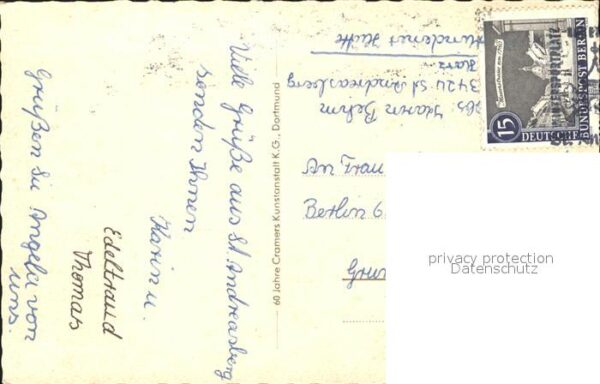 Viele Grüße aus St. Andreasberg
senden Ihnen
Karin u.
Edeltraud
Thomas
Grüßen Sie Angela von
uns.
60 Jahre Cramers Kunstanstalt K.G., Dortmund
Abs. Behm
3424 St. Andreasberg
Harz
Mündener Hütte
15
DEUTSCHE
BUNDESPOST BERLIN
An Frau
Berlin 6
privacy protection
Datenschutz